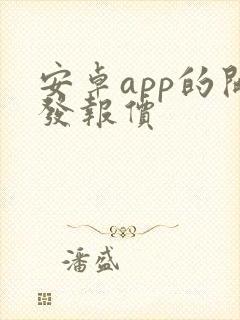 安卓app的開
發報價
潘盛